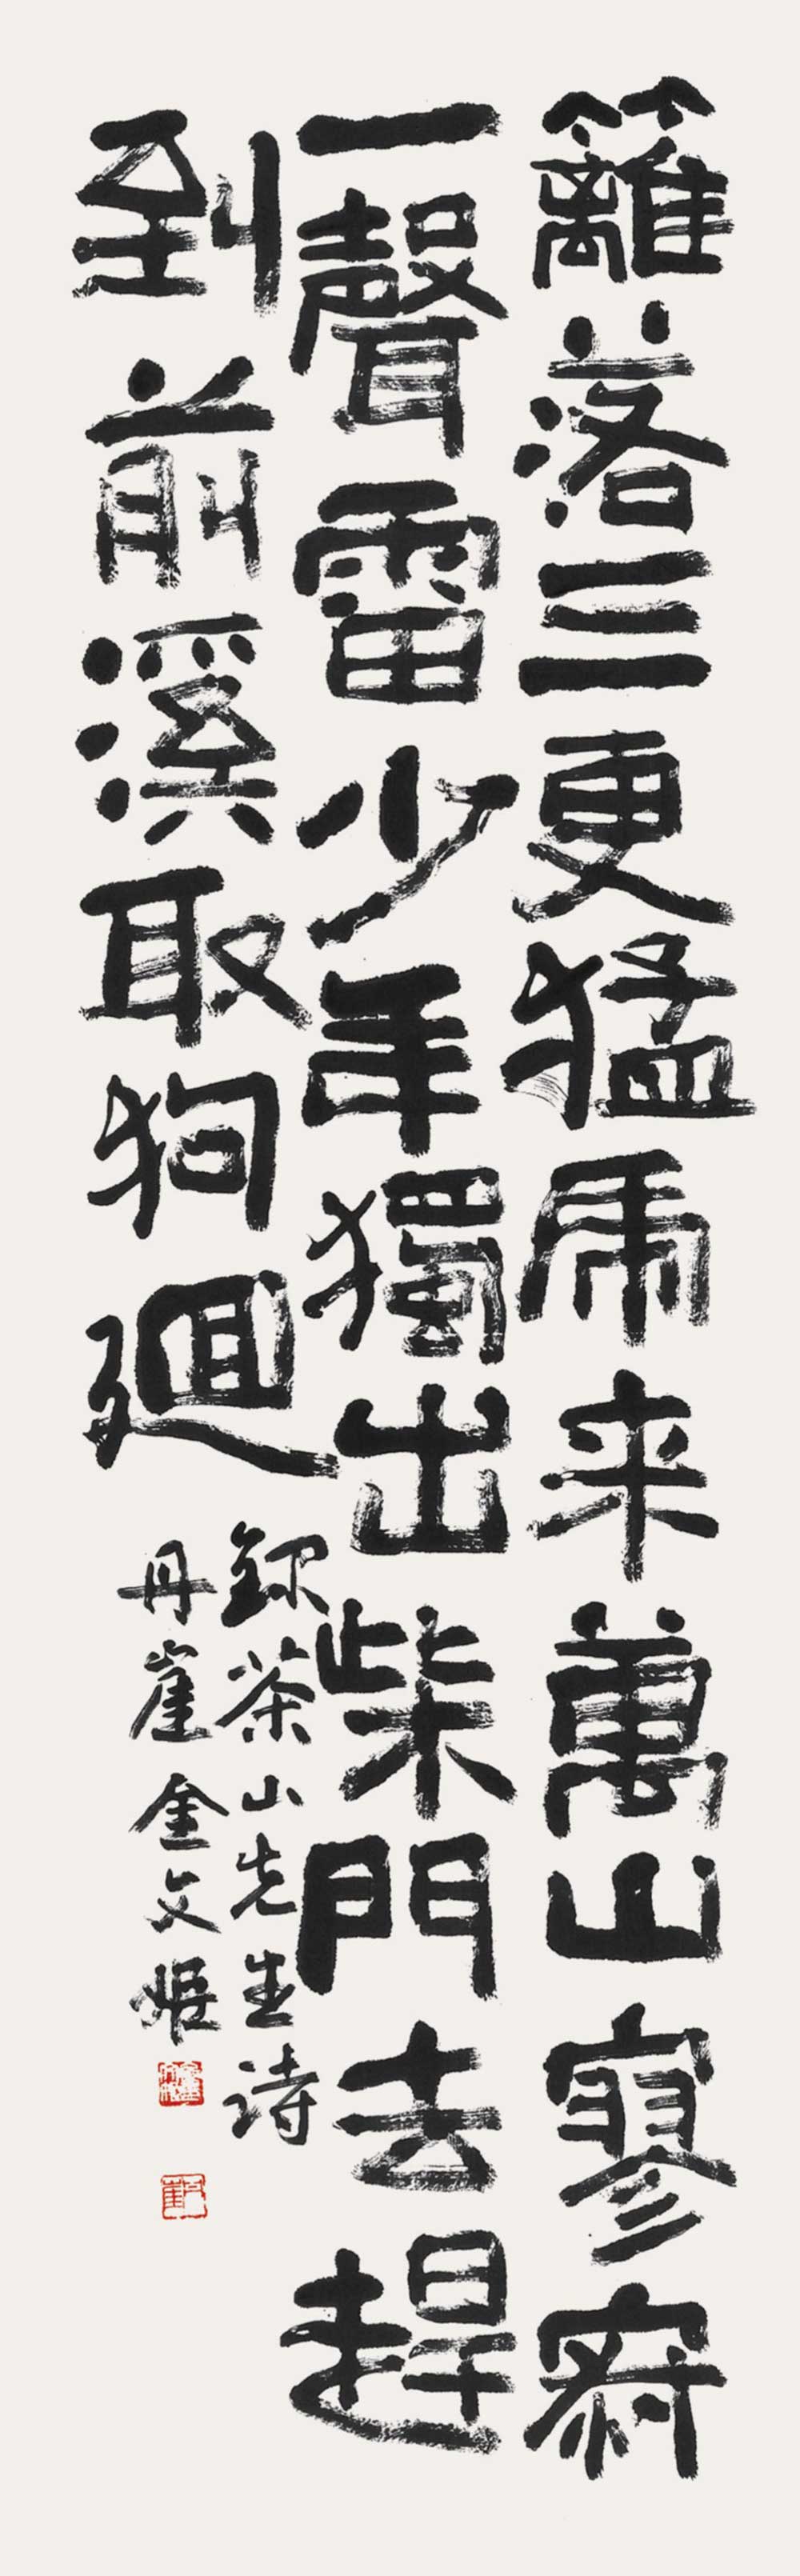 籬落三更猛虎来萬山寥寂
一聲雷少年獨出柴門去趕
到前溪取狗廻
録茶山先生诗
丹崖金文姬